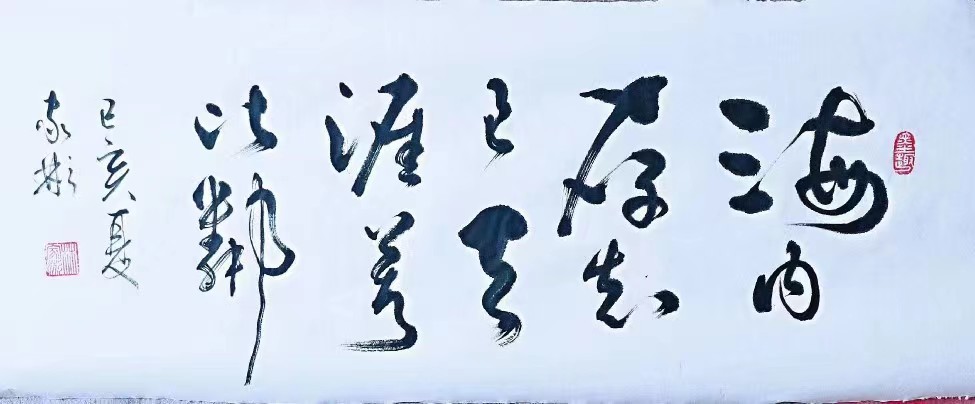 海内
存知
己天
涯若
比鄰
己亥夏
家彬